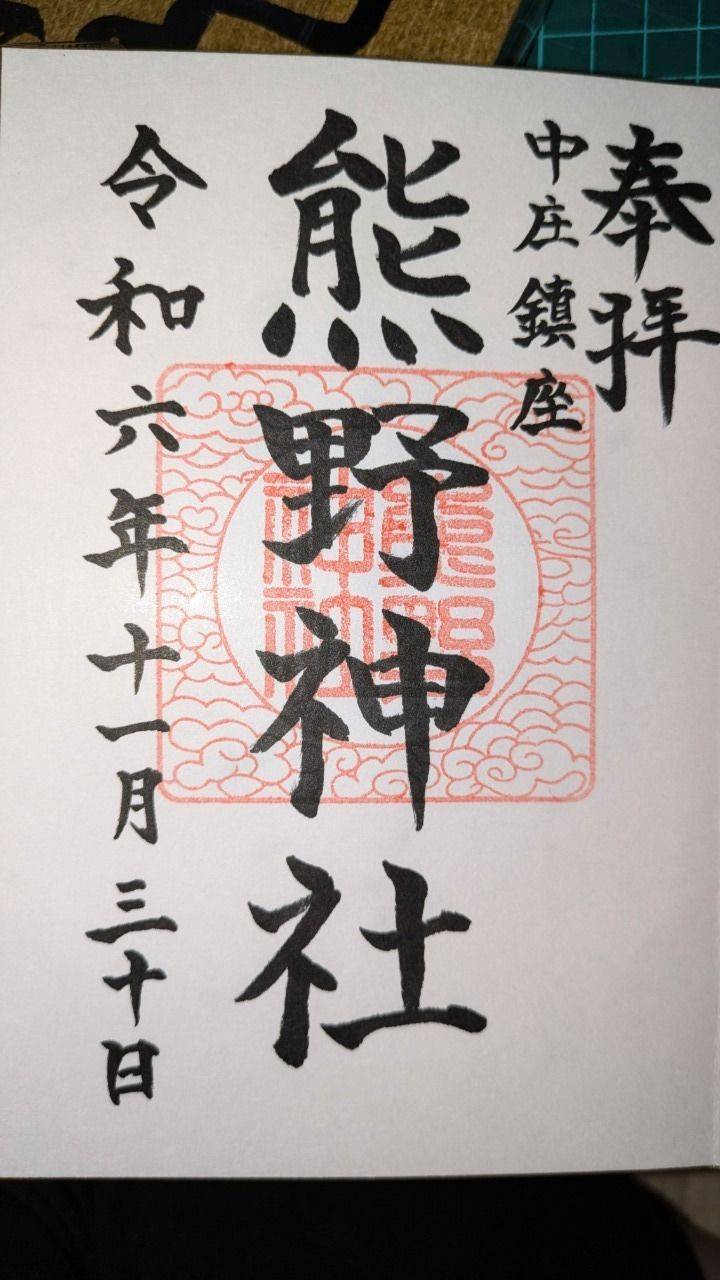 奉拝
中庄鎮座
熊野神社
熊野
神社
令和六年十一月三十日